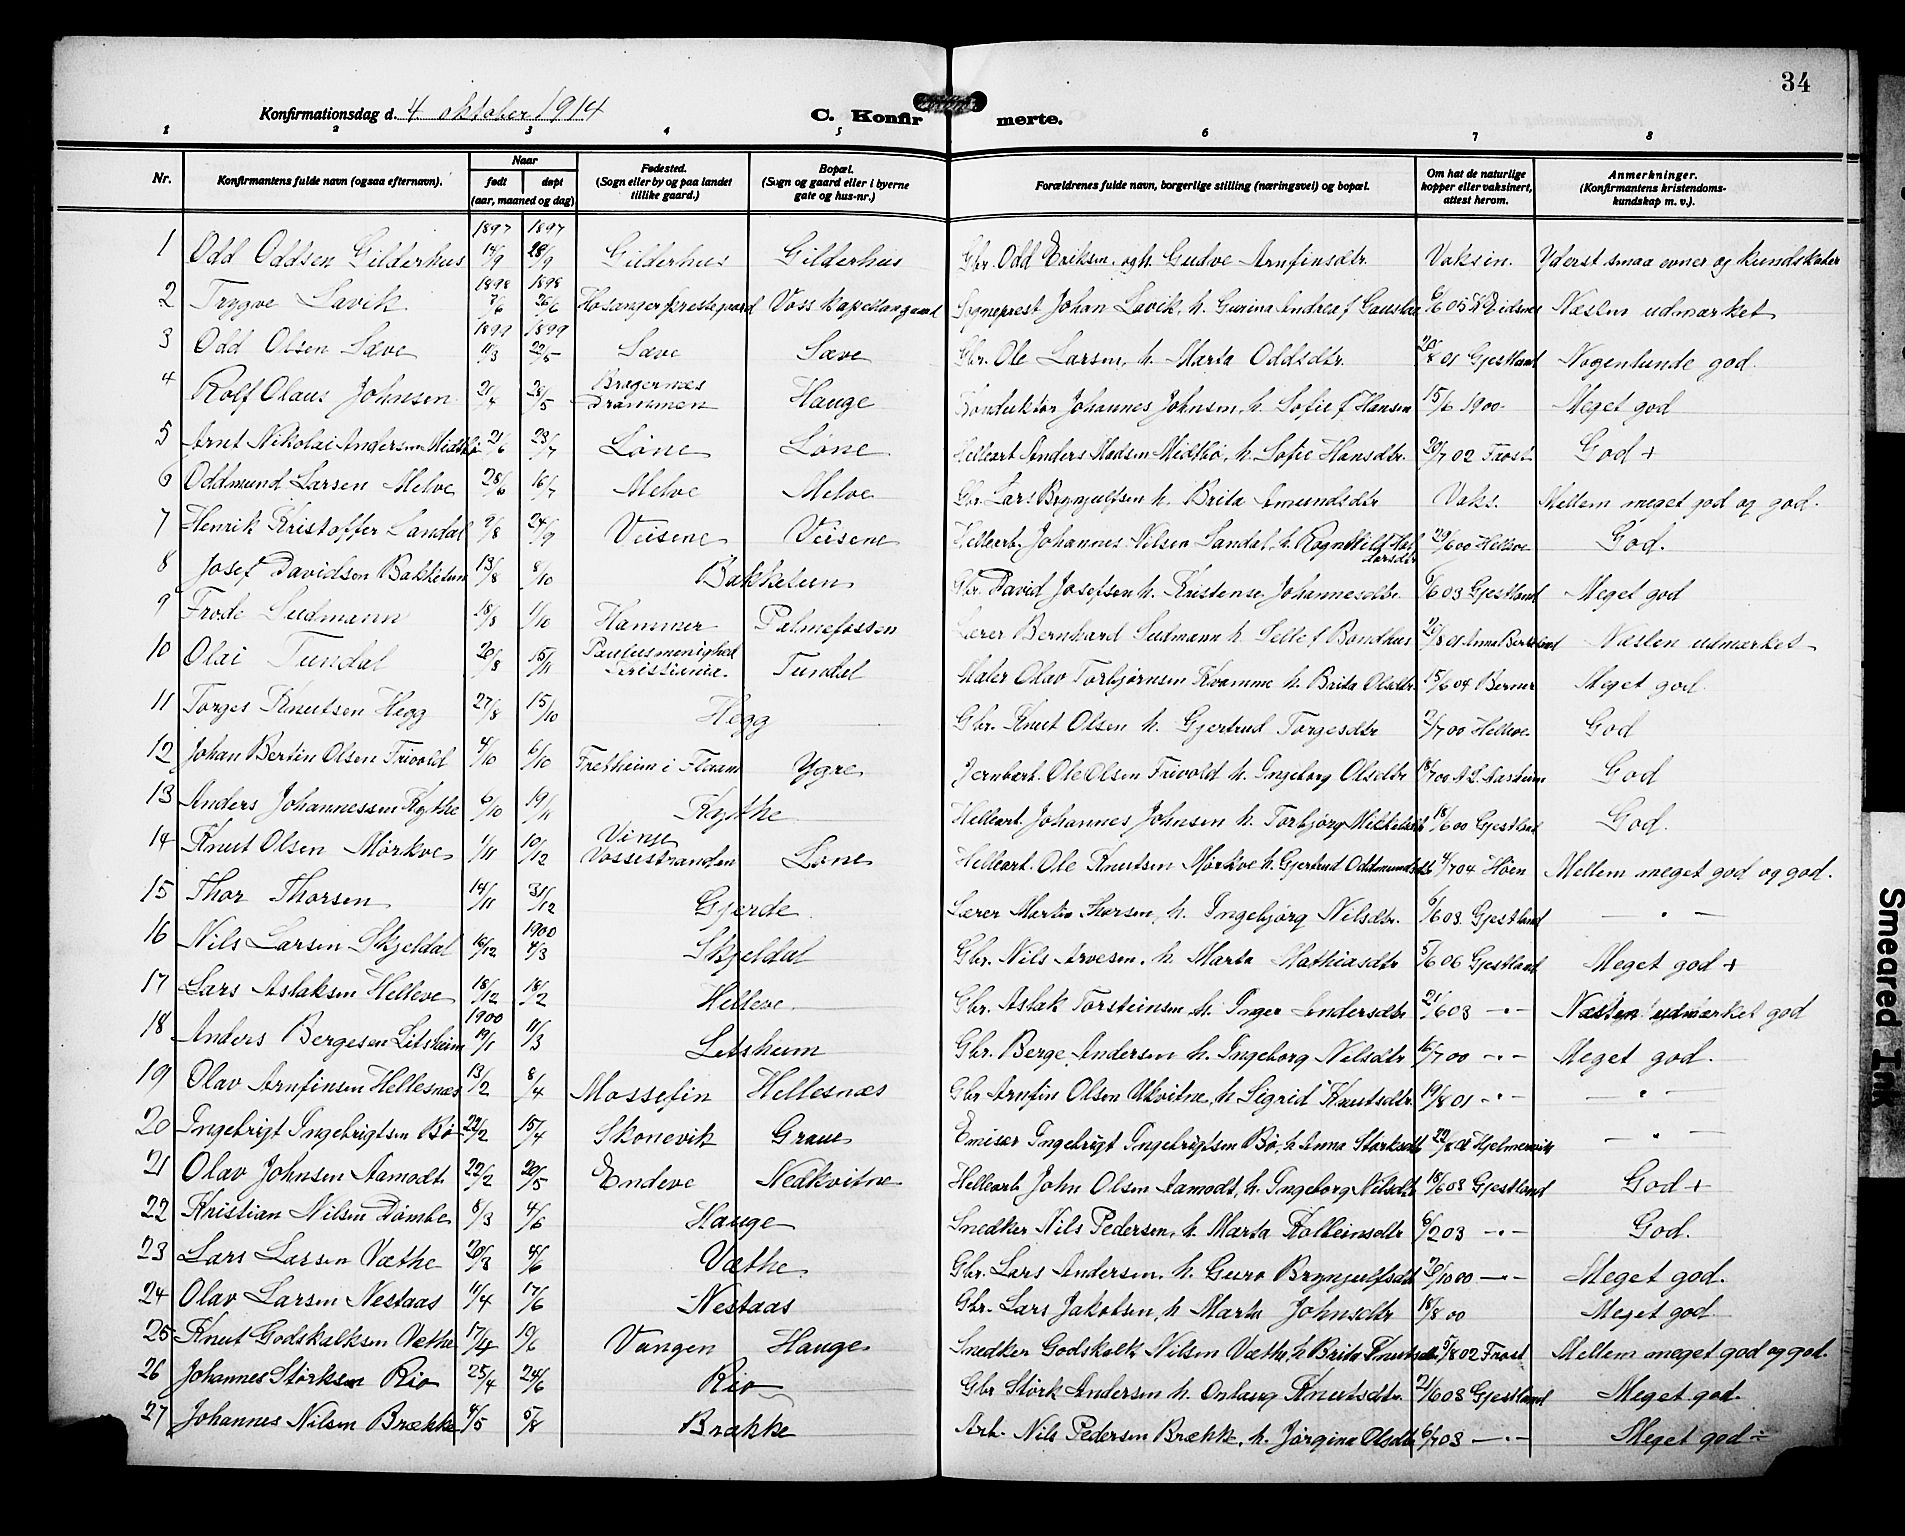 34
Konfirmationsdag d. 4 oktober 1914
C. Konfirmerte.
1 2 3 4 5 6 7 8
Nr. Konfirmantens fulde navn (ogsaa efternavn). Naar født døpt (aar, maaned og dag) Fødested. (Sogn eller by og paa landet tillike gaard.) Bopæl. (Sogn og gaard eller i byerne gate og hus-nr.) Forældrenes fulde navn, borgerlige stilling (næringsvei) og bopæl. Om hat de naturlige kopper eller vaksinert, attest herom. Anmerkninger. (Konfirmantens kristendomskundskap m. v.).
1897 1897
1 Odd Oddsen Gilderhus 14/9 28/9 Gilderhus Gilderhus Gbr. Odd Eriksen og h. Gudve Arnfinsdtr. Vaksin. Yderst smaa evner og kundskaber
1898 1898
2 Trygve Lavik 7/6 26/6 Hosanger prestegaard Voss kapellangaard Sogneprest Johan Lavik, h. Gurina Andrea f Gaustad Næsten udmærket
1899 1899
3 Odd Olsen Sæve 11/3 22/5 Sæve Sæve Gbr. Ole Larsen, h. Marta Oddsdtr. 20/8 01 Gjestland Nogenlunde god
4 Rolf Olaus Johnsen 2/4 28/5 Bragernes Drammen Hauge Konduktør Johannes Johnsen, h. Sofie f Hansen 15/6 1900 Meget god
5 Arnt Nikolai Andersen Midtbø 21/6 23/7 Løne Løne Hellearb. Anders Madsen Midtbø, h. Sofie Hansdtr. 20/7 02 Frost God +
6 Oddmund Larsen Melve 28/6 16/7 Melve Melve Gbr. Lars Brynjulfsen h. Brita Amundsdtr Vaks. Mellem meget god og god.
7 Henrik Kristoffer Landal 9/8 24/9 Veisene Veisene Hellearb. Johannes Nilsen Landal, h. Ragnhild 29/6 00 Helleve God.
8 Josef Davidsen Bakketun 13/8 8/10 Bakketun Gbr. David Josefsen h. Kristense Johannesdtr. 6/6 03 Gjestland Meget god
9 Frode Sudmann 18/8 1/10 Hammer Palmefossen Lærer Bernhard Sudmann h. Selle f Bondhus Næsten udmærket
10 Olai Tundal 20/8 15/11 Paulusmenighed Kristiania. Tundal Maler Olav Torbjørnsen Kvamme h. Brita Olsdtr. 15/6 04 Berner Meget god
11 Torges Knutsen Hegg 27/8 15/10 Hegg Gbr. Knut Olsen h. Gjertrud Torgesdtr 2/7 00 Helleve God
12 Johan Bertin Olsen Trivold 4/10 6/10 Fretheim i Flaam Ygre Jernbarb. Ole Olsen Trivold h. Ingeborg Olsdtr God
13 Anders Johannessen Kythe 6/10 19/11 Kythe Hellearb. Johannes Johnsen h. Torbjørg Mikkelsdtr 18/6 00 Gjestland God.
14 Knut Olsen Mørkve 1/11 10/12 Vinje Vossestranden Løne Hellearb. Ole Knutsen Mørkve h. Gjertrud Oddmundsdtr 4/7 04 Høen Mellem meget god og god.
15 Thor Thorsen 14/11 31/12 Gjerde Lærer Martin Thorsen, h. Ingebjørg Nilsdtr. 6/6 03 Gjestland — " —
1900
16 Nils Larsen Skjeldal 16/12 4/3 Skjeldal Gbr. Nils Arvesen, h. Marta Mathiasdtr 5/6 06 Gjestland Meget god +
17 Lars Aslaksen Helleve 18/12 18/2 Helleve Gbr. Aslak Torsteinsen h. Inger Andersdtr 21/6 03 — " — Næsten udmærket god
1900
18 Anders Bergesen Litsheim 19/1 11/3 Litsheim Gbr. Berge Andersen h. Ingeborg Nilsdtr 16/7 00 — " — Meget god.
19 Olav Arnfinsen Hellesnæs 13/2 8/4 Mossefin Hellesnæs Gbr Arnfin Olsen Ukvitne, h. Sigrid Knutsdtr. 19/8 01 — " — — " —
20 Ingebrigt Ingebrigtsen Bø 22/2 15/4 Skonevik Graue Emiser Ingebrigt Ingebrigtsen Bø, h. Anna Størksdtr — " —
21 Olav Johnsen Aamodt 22/2 20/5 Endeve Nedkvitne Hellearb John Olsen Aamodt, h. Ingeborg Nilsdtr 18/6 03 Gjestland God +
22 Kristian Nilsen Dømbe 8/3 4/6 Hauge Snedker Nils Pedersen, h. Marta Kolbeinsdtr 6/2 03 — " — God.
23 Lars Larsen Væthe 20/3 4/6 Væthe. Gbr. Lars Andersen. h. Guro Brynjulfsdtr 26/10 00 — " — Meget god.
24 Olav Larsen Nestaas 11/4 17/6 Nestaas Gbr. Lars Jakobsen, h Marta Johnsdtr 18/8 00 Meget god
25 Knut Godskalksen Væthe 17/4 19/6 Vangen Hauge Snedker Godskalk Nilsen Væthe, h. Brita Knutsdtr 5/8 02 Frost Mellem meget god og god.
26 Johannes Størksen Rio 25/4 24/6 Rio Gbr Størk Andersen h. Onlaug Knutsdtr. 21/6 03 Gjestland Meget god.
27 Johannes Nilsen Brække 4/5 5/8 Brække Arb. Nils Pedersen Brække, h. Jørgina Olsdtr 6/7 03 — " — Meget god ÷
Smeared Ink